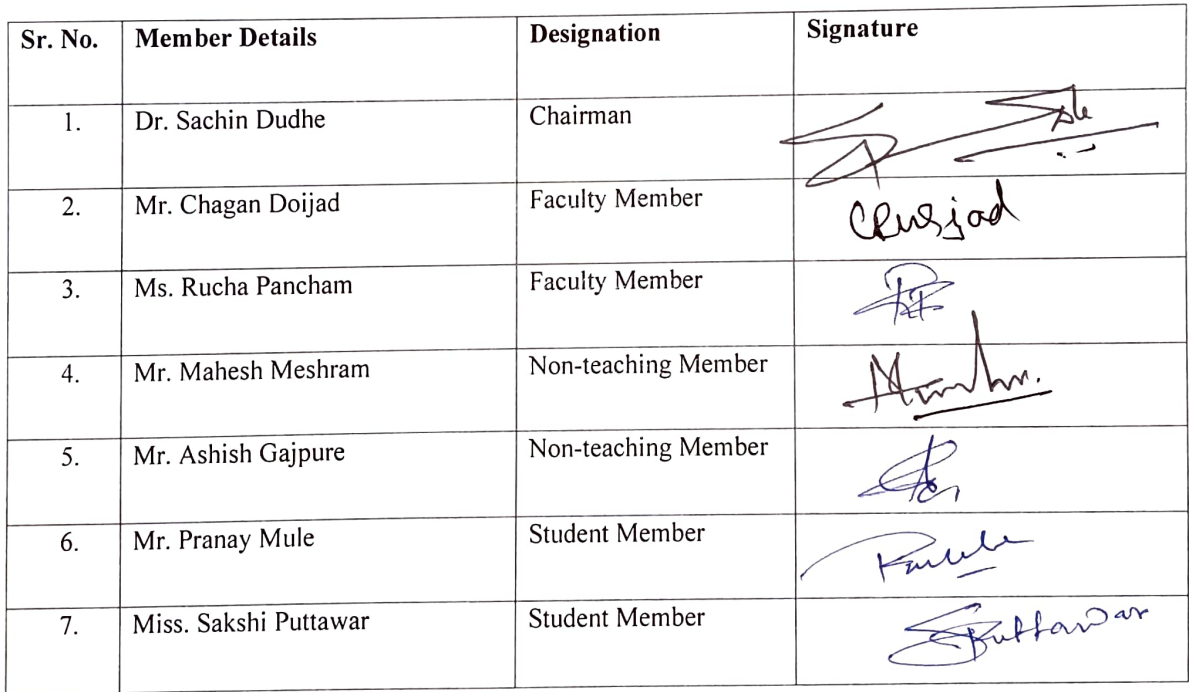 Sr. No. Member Details Designation Signature
1. Dr. Sachin Dudhe Chairman
2. Mr. Chagan Doijad Faculty Member
3. Ms. Rucha Pancham Faculty Member
4. Mr. Mahesh Meshram Non-teaching Member
5. Mr. Ashish Gajpure Non-teaching Member
6. Mr. Pranay Mule Student Member
7. Miss. Sakshi Puttawar Student Member